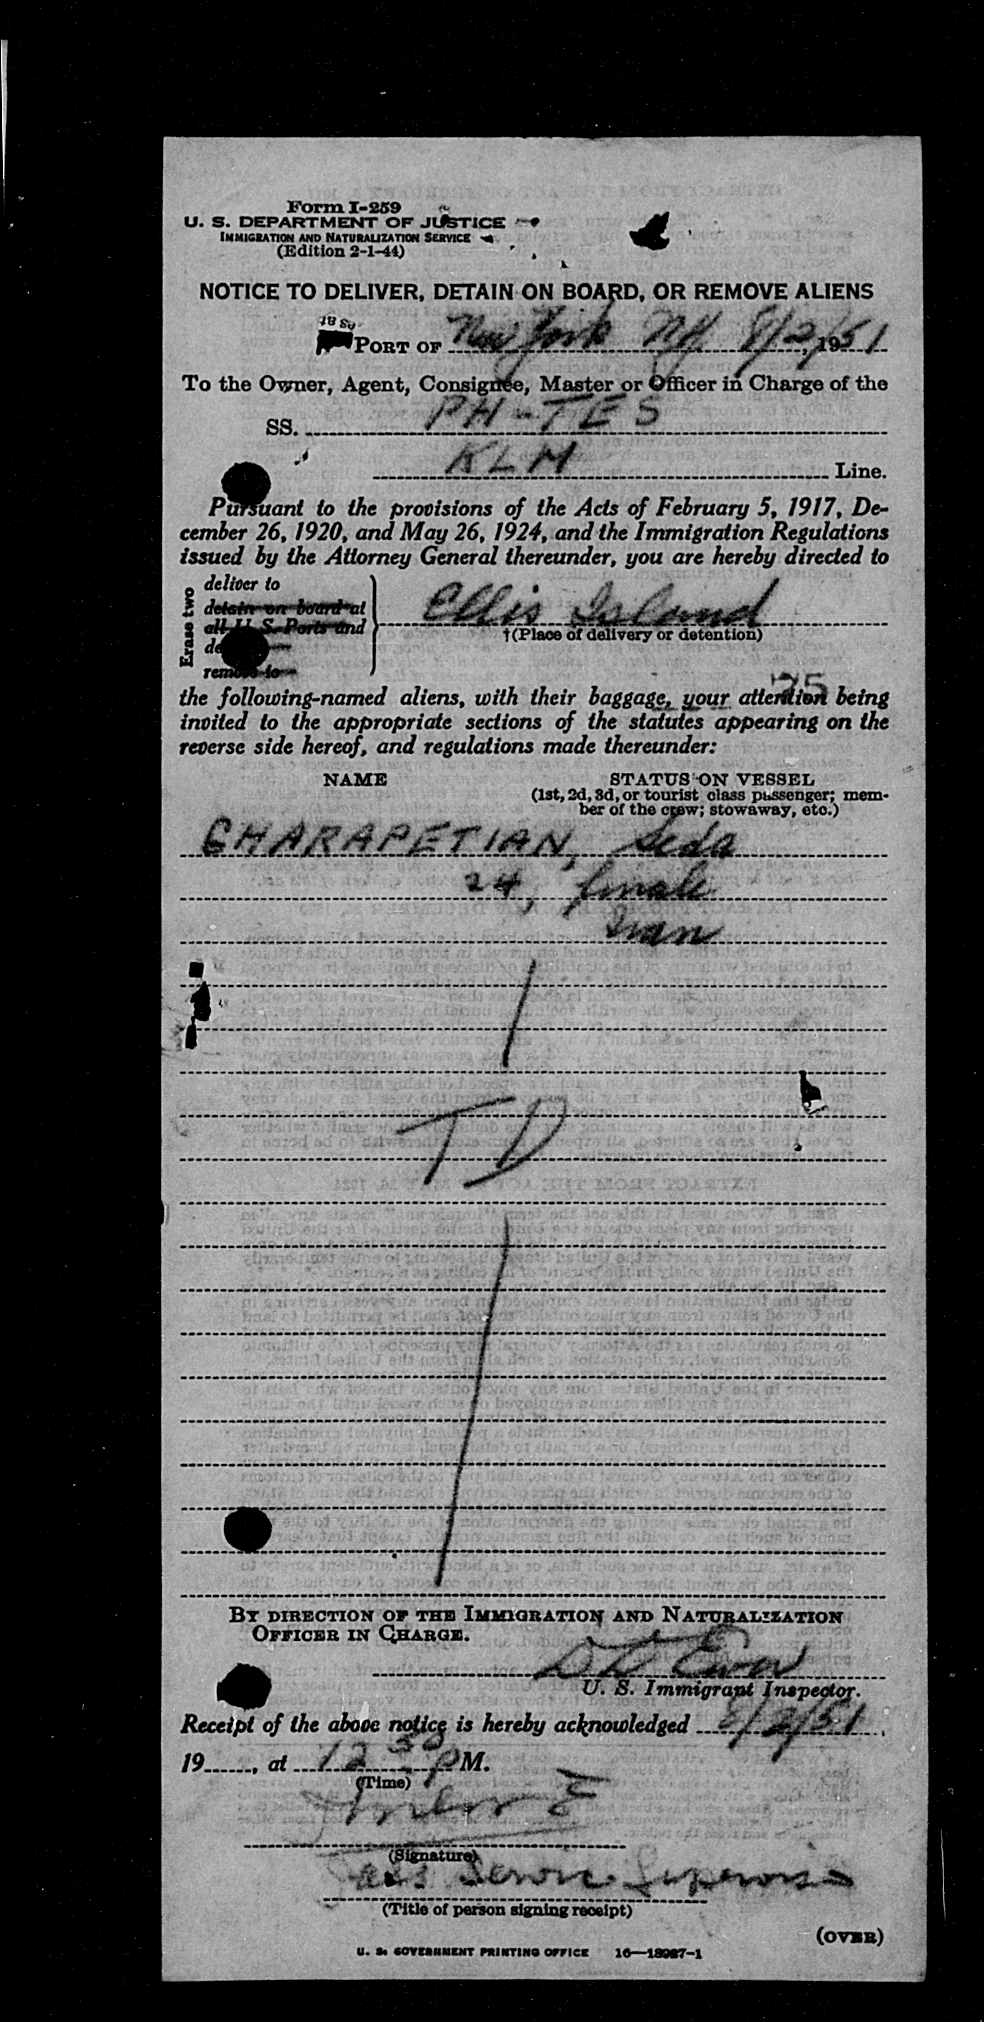 Form I-259
U. S. DEPARTMENT OF JUSTICE
IMMIGRATION AND NATURALIZATION SERVICE
(Edition 2-1-44)
NOTICE TO DELIVER, DETAIN ON BOARD, OR REMOVE ALIENS
PORT OF New York NY 8/2/, 1951
To the Owner, Agent, Consignee, Master or Officer in Charge of the
SS. PH-TES
KLM Line.
Pursuant to the provisions of the Acts of February 5, 1917, De-
cember 26, 1920, and May 26, 1924, and the Immigration Regulations
issued by the Attorney General thereunder, you are hereby directed to
Erase two
deliver to
detain on board at
all U. S. Ports and
remove to
Ellis Island
†(Place of delivery or detention)
the following-named aliens, with their baggage, your attention being
invited to the appropriate sections of the statutes appearing on the
reverse side hereof, and regulations made thereunder:
NAME STATUS ON VESSEL
(1st, 2d, 3d, or tourist class passenger; mem-
ber of the crew; stowaway, etc.)
GHARAPETIAN, Seda
24, female
Iran
TD
BY DIRECTION OF THE IMMIGRATION AND NATURALIZATION
OFFICER IN CHARGE.
U. S. Immigrant Inspector.
Receipt of the above notice is hereby acknowledged 8/2/51,
19, at 12 30 P M.
(Time)
(Signature)
Pass Service Supervisor
(Title of person signing receipt)
(OVER)
U. S. GOVERNMENT PRINTING OFFICE 16—18987-1